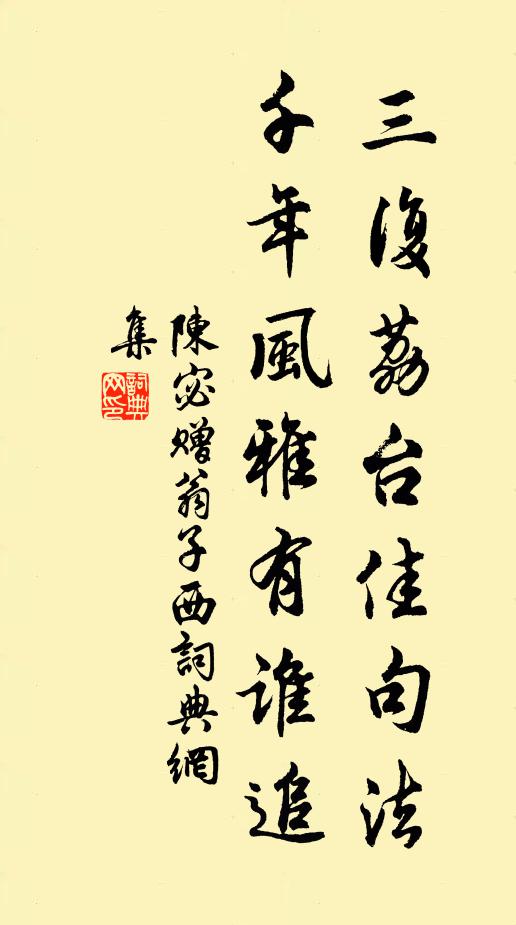 三復荔台佳句法
千年風雅有誰追
陳宓贈翁子西詞典網
集
詞典
网印